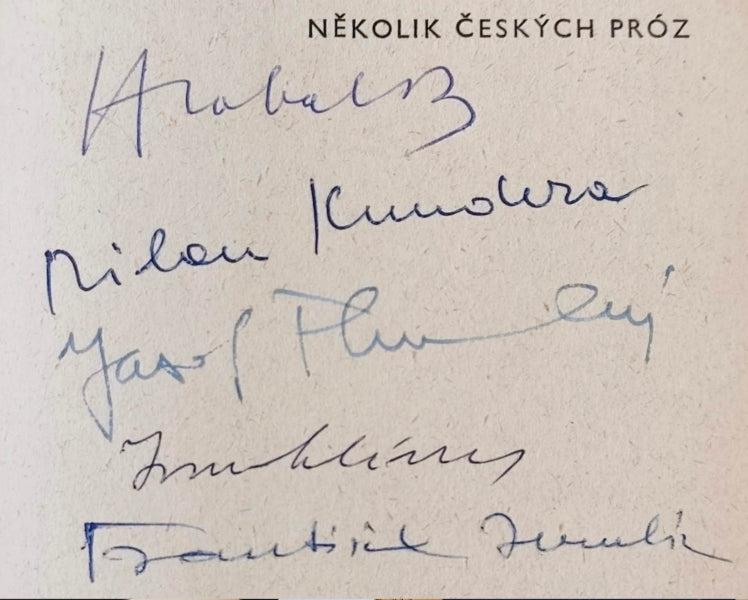 NĚKOLIK ČESKÝCH PRÓZ
Hrabal B
Milan Kundera
Josef
Ivan Klíma
František